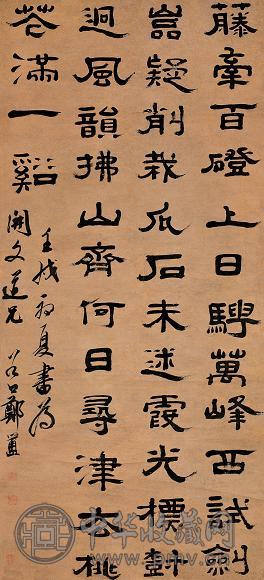 藤牽百磴上日騁萬峰西試劍
嵓疑削栽瓜石未迷霞光標
迥風韻拂山齊何日尋津去桃
花滿一谿
壬戌初夏書為
開文道兄
谷口鄭簠
中华收藏网